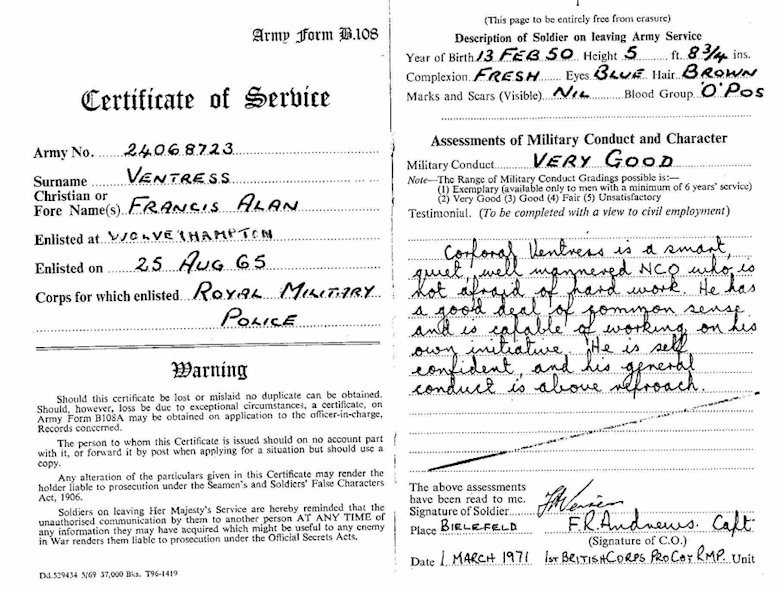 Army Form B.108
Certificate of Service
Army No. 24068723
Surname VENTRESS
Christian or
Fore Name(s) FRANCIS ALAN
Enlisted at WOLVERHAMPTON
Enlisted on 25 AUG 65
Corps for which enlisted ROYAL MILITARY
POLICE
Warning
Should this certificate be lost or mislaid no duplicate can be obtained.
Should, however, loss be due to exceptional circumstances, a certificate, on
Army Form B108A may be obtained on application to the officer-in-charge,
Records concerned.
The person to whom this Certificate is issued should on no account part
with it, or forward it by post when applying for a situation but should use a
copy.
Any alteration of the particulars given in this Certificate may render the
holder liable to prosecution under the Seamen's and Soldiers' False Characters
Act, 1906.
Soldiers on leaving Her Majesty's Service are hereby reminded that the
unauthorised communication by them to another person AT ANY TIME of
any information they may have acquired which might be useful to any enemy
in War renders them liable to prosecution under the Official Secrets Acts.
Dd.529434 5/69 37,000 Bks. T96-1419
(This page to be entirely free from erasure)
Description of Soldier on leaving Army Service
Year of Birth 13 FEB 50 Height 5 ft. 8 3/4 ins.
Complexion FRESH Eyes BLUE Hair BROWN
Marks and Scars (Visible) NIL Blood Group 'O' POS
Assessments of Military Conduct and Character
Military Conduct VERY GOOD
Note—The Range of Military Conduct Gradings possible is:—
(1) Exemplary (available only to men with a minimum of 6 years' service)
(2) Very Good (3) Good (4) Fair (5) Unsatisfactory
Testimonial. (To be completed with a view to civil employment)
Corporal Ventress is a smart,
quiet, well mannered NCO who is
not afraid of hard work. He has
a good deal of common sense
and is capable of working on his
own initiative. He is self
confident, and his general
conduct is above reproach.
The above assessments
have been read to me.
Signature of Soldier
Place BIELEFELD F.R. Andrews. Capt
(Signature of C.O.)
Date 1 MARCH 1971 1ST BRITISH CORPS PRO COY RMP. Unit